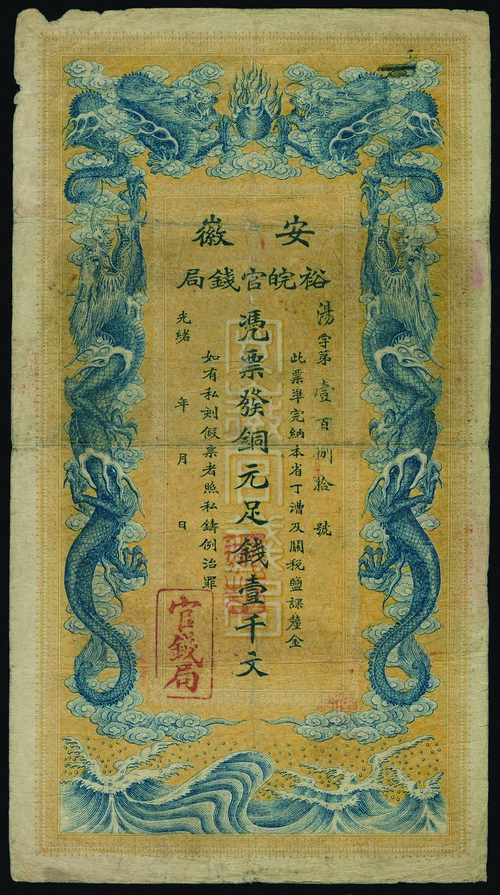 安徽
裕皖官錢局
湯字第壹百捌拾號
此票準完納本省丁漕及關稅鹽課釐金
憑票發銅元足錢壹千文
如有私刻假票者照私鑄例治罪
光緒 年 月 日
官錢局